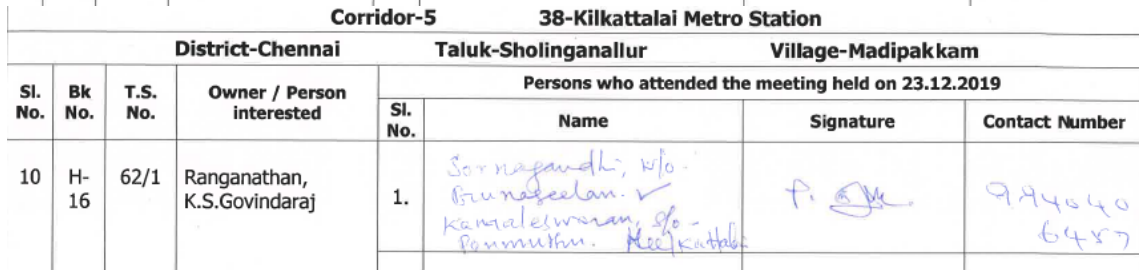 Corridor-5 38-Kilkattalai Metro Station
District-Chennai Taluk-Sholinganallur Village-Madipakkam
Sl. No. Bk No. T.S. No. Owner / Person interested Persons who attended the meeting held on 23.12.2019
Sl. No. Name Signature Contact Number
10 H-16 62/1 Ranganathan,
K.S.Govindaraj
1. Sornagandhi, W/o.
Kamaleswaran, S/o-
Ponmuthu.
994040